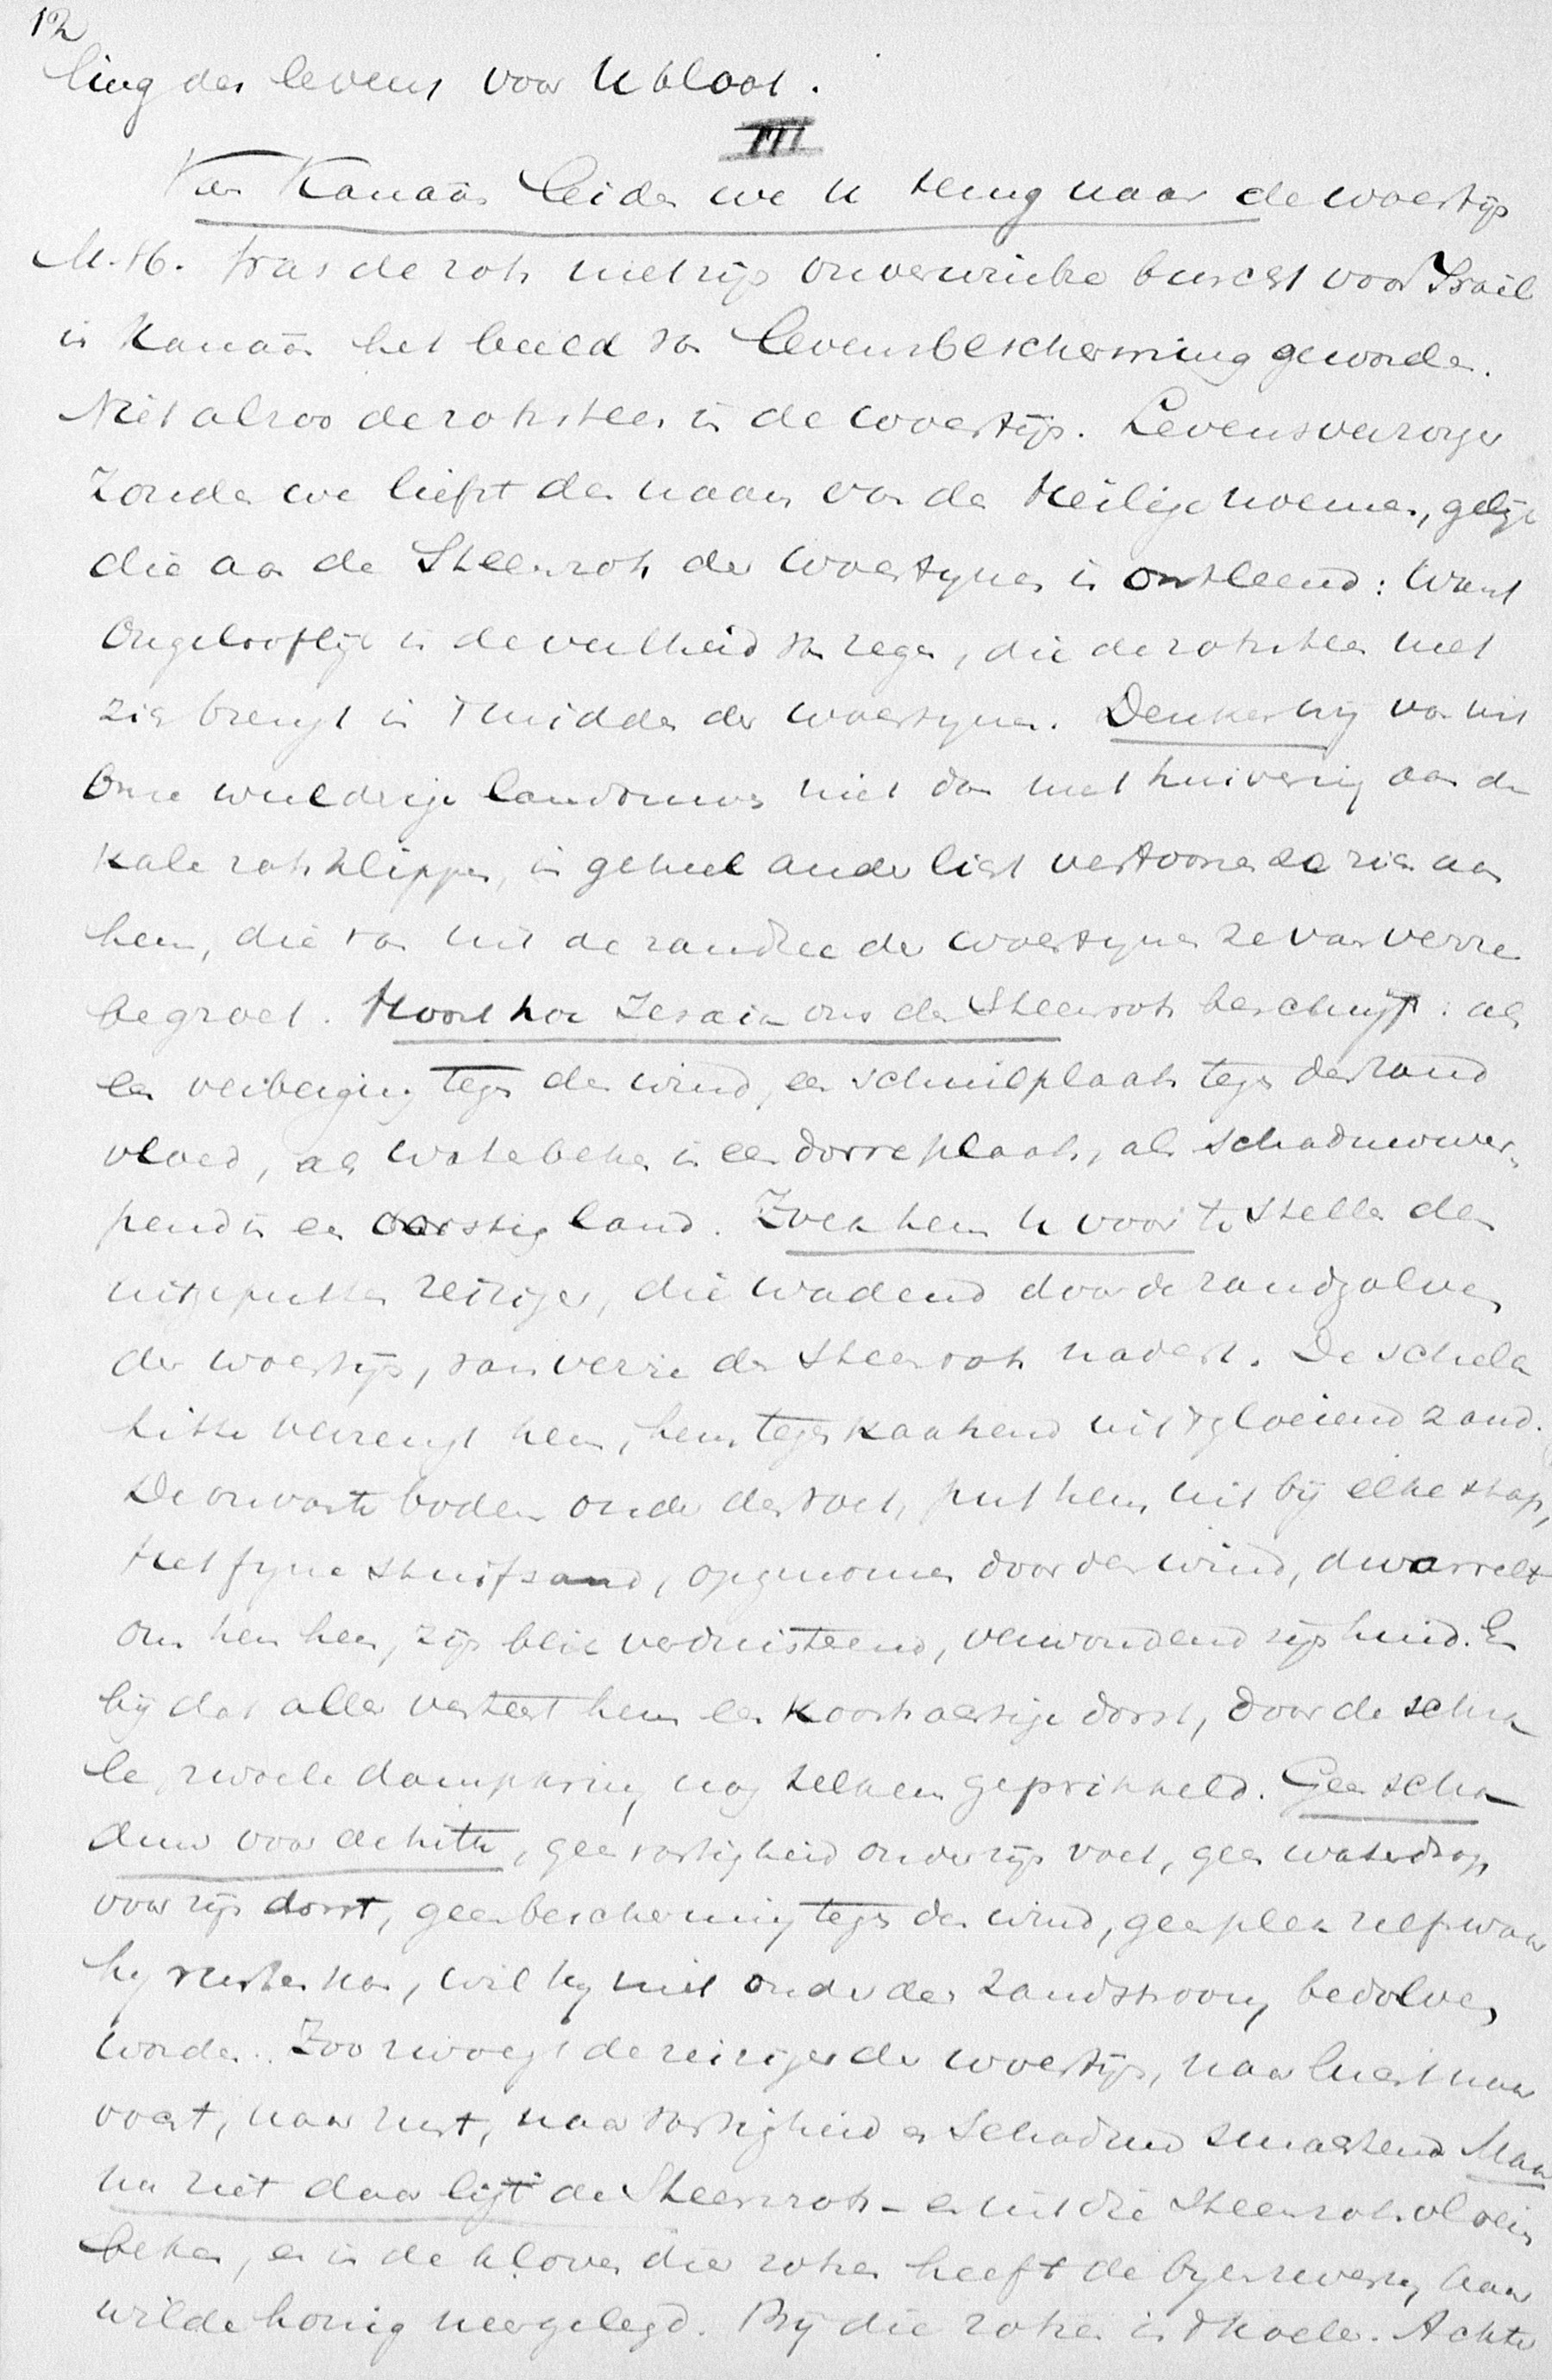 12
ling des levens voor U bloot.
III
Van Kanaän leiden we U terug naar de woestijn
M.H. Was de rots met zijn onverwrikte burcht voor Israël
in Kanaän het beeld van levensbescherming geworden.
Niet alzoo de rotssteen in de woestijn. Levensverzorger
zouden we liefst den naam van den Heilige noemen, gelijk
die aan de Steenrots der woestijnen is ontleend: Want
Ongelooflijk is de veelheid van zegen, die de rotssteen met
zich brengt in 't midden der woestijnen. Denken wij van uit
onze weelderige landouwen niet dan met huivering aan de
kale rotsklippen, in geheel ander licht vertoonen ze zich aan
hem, die van uit de zandzee der woestijnen ze van verre
begroet. Hoort hoe Jesaia ons den Steenrots beschrijft: als
een verberging tegen den wind, een schuilplaats tegen den
vloed, als waterbeken in een dorre plaats, als schaduwwer-
pend in een dorstig land. Zoek hem U voor te stellen den
uitgeputten reiziger, die wadend door de zandgolven
der woestijn, van verre den Steenrots nadert. De schelle
hitte verzengt hem, hem tegenkaatsend uit 't gloeiend zand.
De onvaste bodem onder den voet, put hem uit bij elke stap,
Het fijne stuifzand, opgenomen door den wind, dwarrelt
om hem heen, zijn blik verduisterend, verwondend zijn huid. En
bij dat alles verteert hem een koortsachtige dorst, door de schra-
le, zwoele dampkring nog geprikkeld. Geen scha-
duw voor de hitte, geen vastigheid onder zijn voet, geen waterdrop
voor zijn dorst, geen bescherming tegen den wind, geen plek zelfs waar
hij rusten kan, wil hij niet onder den zandstroom bedolven
worden. Zoo zwoegt de reiziger der woestijn, naar lucht naar
vocht, naar rust, naar vastigheid en schaduw smachtend Maar
nu ziet daar ligt de Steenrots - en uit die Steenrots vloeien
beken, en in de kloven dier rotsen heeft de bijenzwerm haar
wilde honig neergelegd. Bij die rotsen is 't koele. Achter